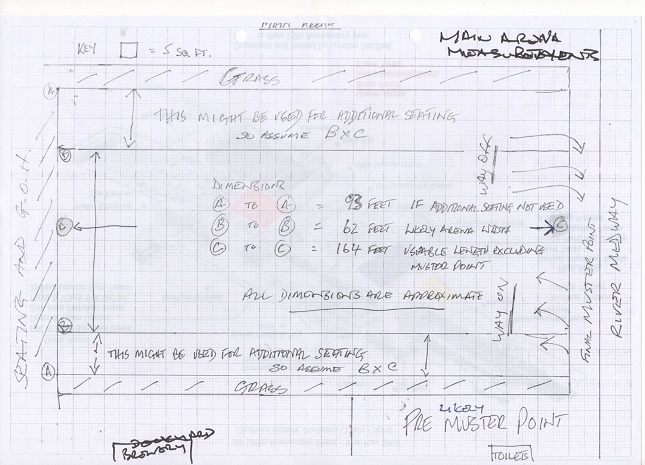 MAIN ARENA
MAIN ARENA
MEASUREMENTS
KEY = 5 SQ. FT.
GRASS
A
THIS MIGHT BE USED FOR ADDITIONAL SEATING
SO ASSUME B x C
B
WAY OFF
DIMENSIONS
A TO A = 93 FEET IF ADDITIONAL SEATING NOT USED
B TO B = 62 FEET LIKELY ARENA WIDTH
C TO C = 164 FEET USEABLE LENGTH EXCLUDING
MUSTER POINT
C
C
SEATING AND G.O.H.
FINAL MUSTER POINT
RIVER MEDWAY
ALL DIMENSIONS ARE APPROXIMATE
WAY ON
B
THIS MIGHT BE USED FOR ADDITIONAL SEATING
SO ASSUME B x C
A
GRASS
LIKELY
PRE MUSTER POINT
DOCKYARD
BROWERY
TOILETS